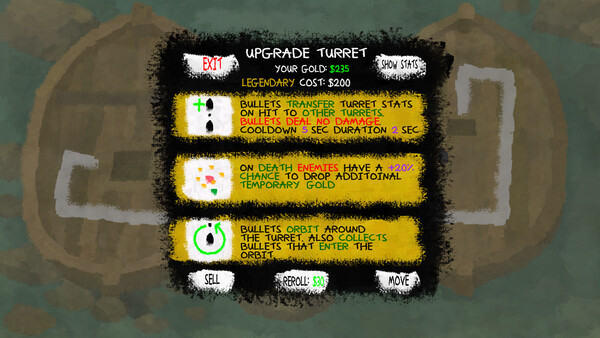 UPGRADE TURRET
EXIT
YOUR GOLD: $235
SHOW STATS
LEGENDARY COST: $200
BULLETS TRANSFER TURRET STATS
ON HIT TO OTHER TURRETS.
BULLETS DEAL NO DAMAGE.
COOLDOWN 5 SEC DURATION 2 SEC
ON DEATH ENEMIES HAVE A +20%
CHANCE TO DROP ADDITOINAL
TEMPORARY GOLD
BULLETS ORBIT AROUND
THE TURRET. ALSO COLLECTS
BULLETS THAT ENTER THE
ORBIT.
SELL
REROLL: $30
MOVE